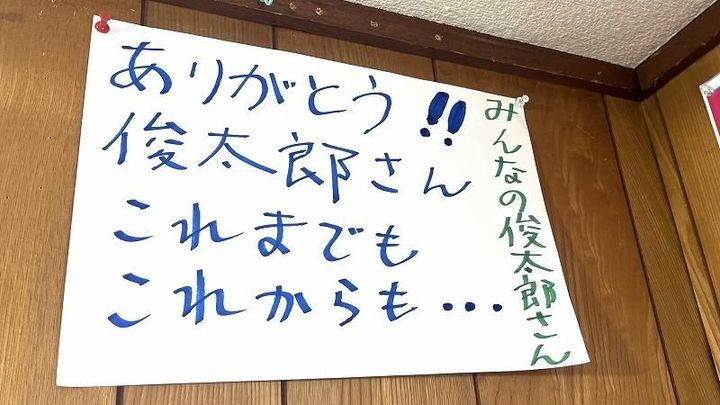 ありがとう!!
俊太郎さん
これまでも
これからも・・・
みんなの俊太郎さん